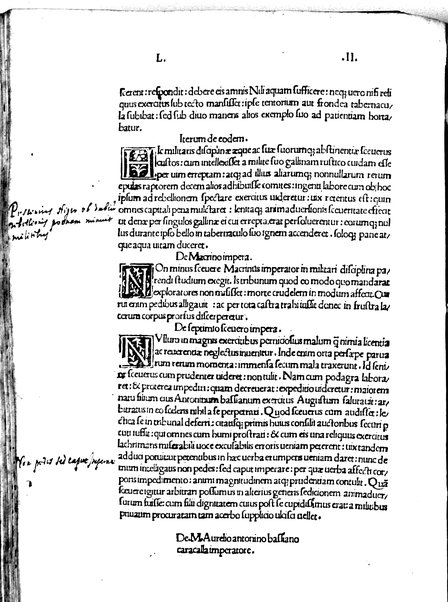 L. .II.
ficerent: respondit: debere eis amnis Nili aquam sufficere: neq; uero nisi reli
quus exercitus sub tecto mansisset: ipse tentorium aut frondea tabernacu
la subibat: sed sub diuo manens alios exemplo suo ad patientiam horta
batur.
Iterum de eodem.
Ic militaris disciplinæ æque ac suæ suorumq; abstinentiæ seuerus
custos: cum intellexisset a milite suo gallinam rustico cuidam esse
per uim erreptam: atq; ad illius aliarumq; nonnullarum rerum
epulas raptorem decem alios adhibuisse comites: ingenti labore cum ob hoc
ipsum ad rebellionem spectare exercitus uideretur: uix retentus est: quin
omnes capitali pena mulctaret: lentaq; animaduersionis seueritate effecit
ut denæ per singulos gallinæ ei cui errepta erat persoluerentur: eorumq; nul
lus durante ipso bello in tabernaculo suo ignem accenderet. soloq; pane at
que aqua uitam duceret.
De Macrino impera.
NOn minus seuere Macrinus imperator in militari disciplina pa
rendi studium exegit. Is tribunum quod eo modo quo mandarat
exploratores non misisset: morte crudelem in modum affecit. Cur
rui enim pedibus alligauit: ac per tota castra trahi iussit donec in frustra la
cerum corpus prorsus discerperetur.
De septimio seuero impera.
NUllum in magnis exercitibus perniciosius malum q nimia licentia
ac reuerentiæ neglectus inuenitur. Inde enim orta persæpe parua
rum rerum momenta: immensa secum mala traxerunt. Id seni
or seuerus cum prudenter uideret: non tulit. Nam cum podagra labora
ret: & proterea impediri: quam decreuerat: expeditio uideretur: maiorem
natu filium eius Antoninum bassianum exercitus Augustum salutauit: ar
bitratus in eo sedens nihil a se perperam. Quod seuerus cum audisset: le
ctica se in tribunal deferri: citatisq; primis huius consilii auctoribus securi p
cuti iussit: qui omnes cum humi prostrati: & cum eis una reliquus exercitus
lachrimans miserabili uoce excusabilis erroris ueniam peterent: uix tandem
adduci potuit: ut petentibus in hæc uerba erumpens ueniam daret: nunc de
mum intelligatis non pedes: sed caput imperare: per quæ uerba affecti cor
poris impedimento: animi magnitudinem atq; prudentiam contulit. Quā
seuere igitur arbitrari possumus in alterius generis sedicionem animaduer
surum fuisse: cum filii dignitatem cuius post se cupidissimus erat: a militibus
priuatim procuratam tam acerbo supplicio ulcisci uellet.
De.M.Aurelio antonino bassiano
caracalla imperatore.
Non pedes sed caput imperare